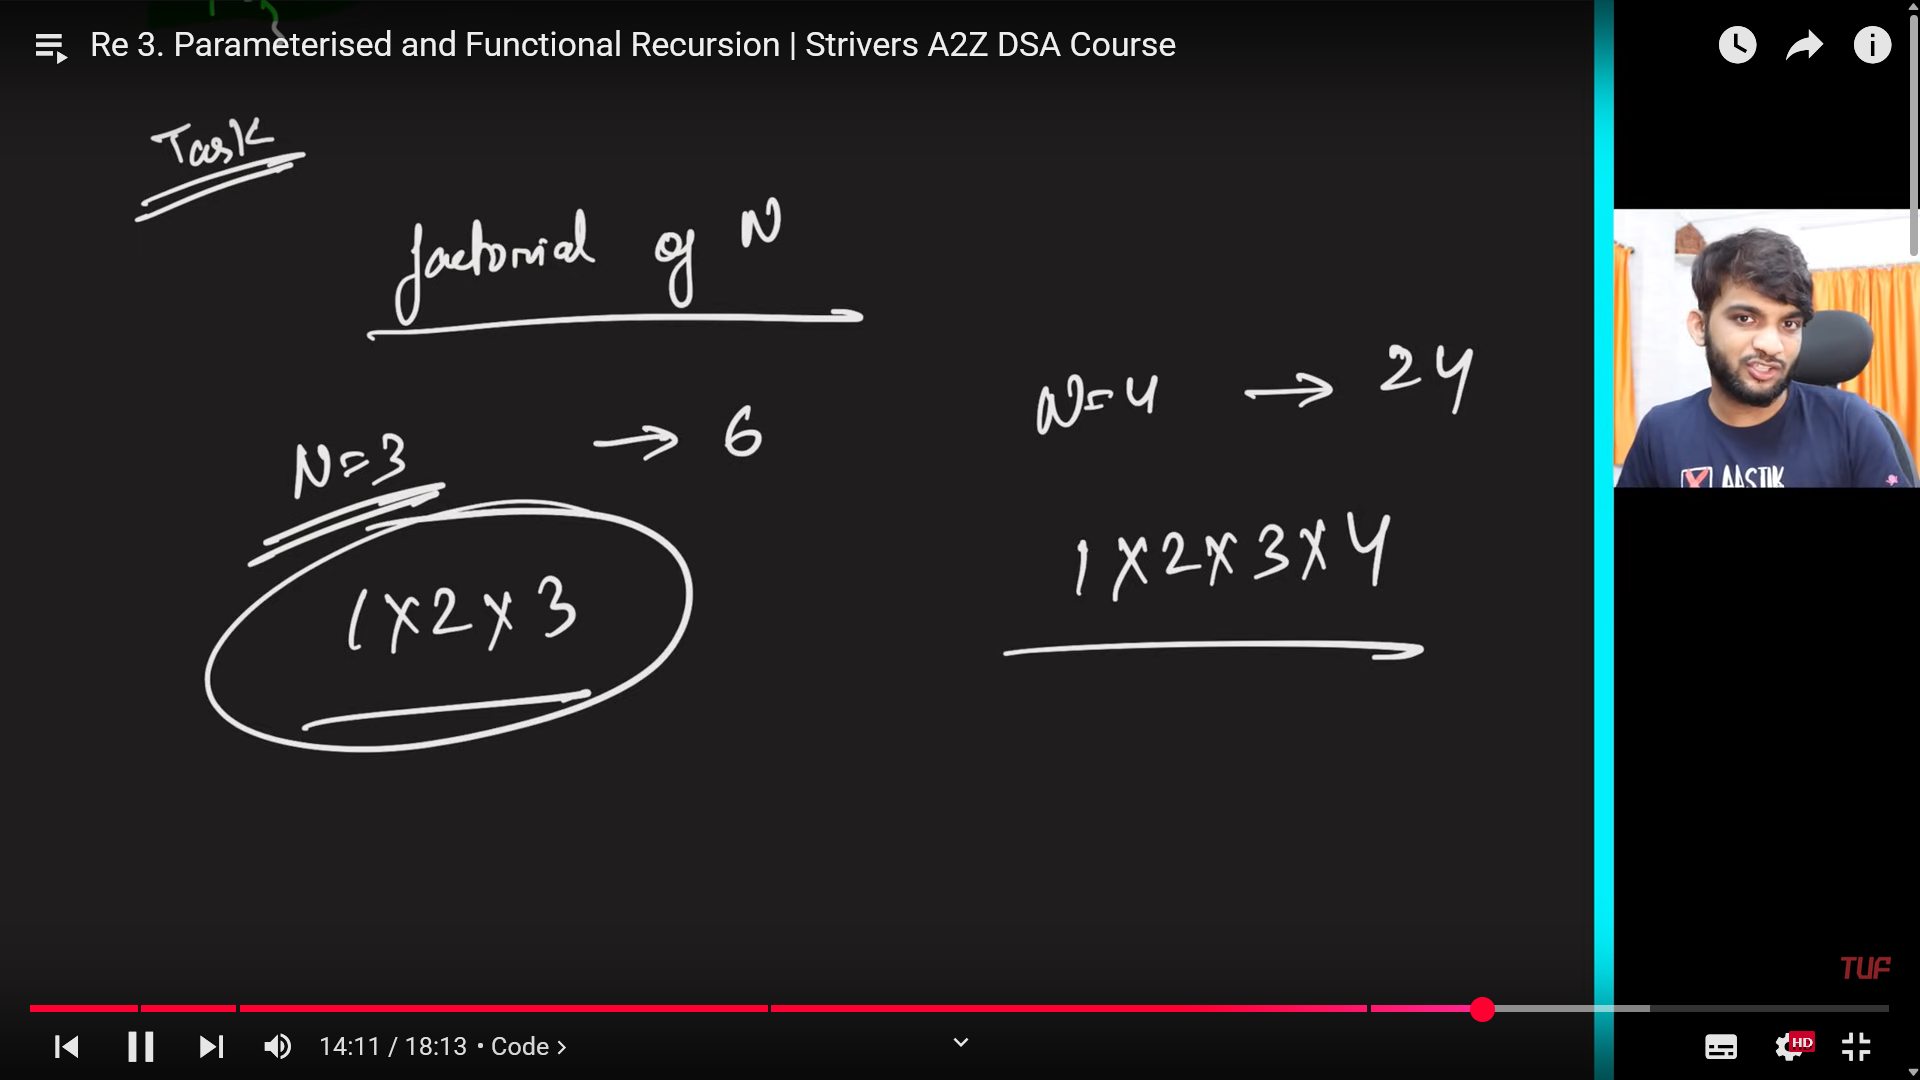 Re 3. Parameterised and Functional Recursion | Strivers A2Z DSA Course
Task
factorial of N
N=3 → 6
1x2x3
N=4 → 24
1x2x3x4
AASTIK
TUF
14:11 / 18:13 • Code >
HD